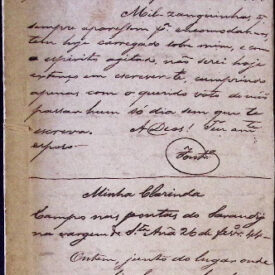 Mil zanguinhas q̃
sempre aparessem já encomodahm
tem hoje carregado sobre mim, e com
o espirito agitado, não serei hoje
extenço em escreverte cumprindo
apenas com o querido voto de não
passar hum só dia sem que te
escreva. A Deos! Teu am.te
esposo
Minha Clarinda
Campo nas pontas do Sarandy
na vargem de S.ta Anã 26 de fevr.o 44
Ontem, junto do lugar onde